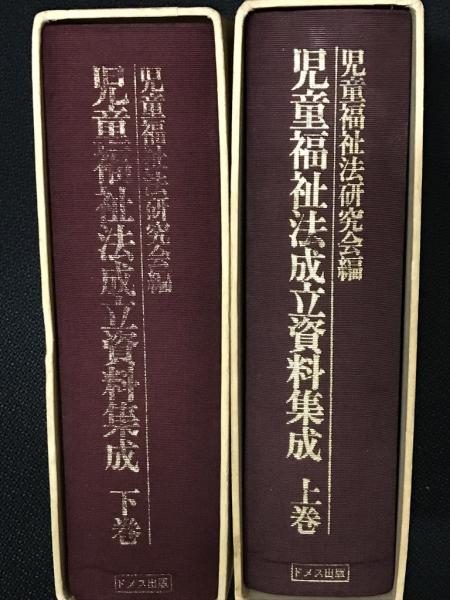 児童福祉法研究会編
児童福祉法成立資料集成 上巻
ドメス出版
児童福祉法研究会編
児童福祉法成立資料集成 下巻
ドメス出版